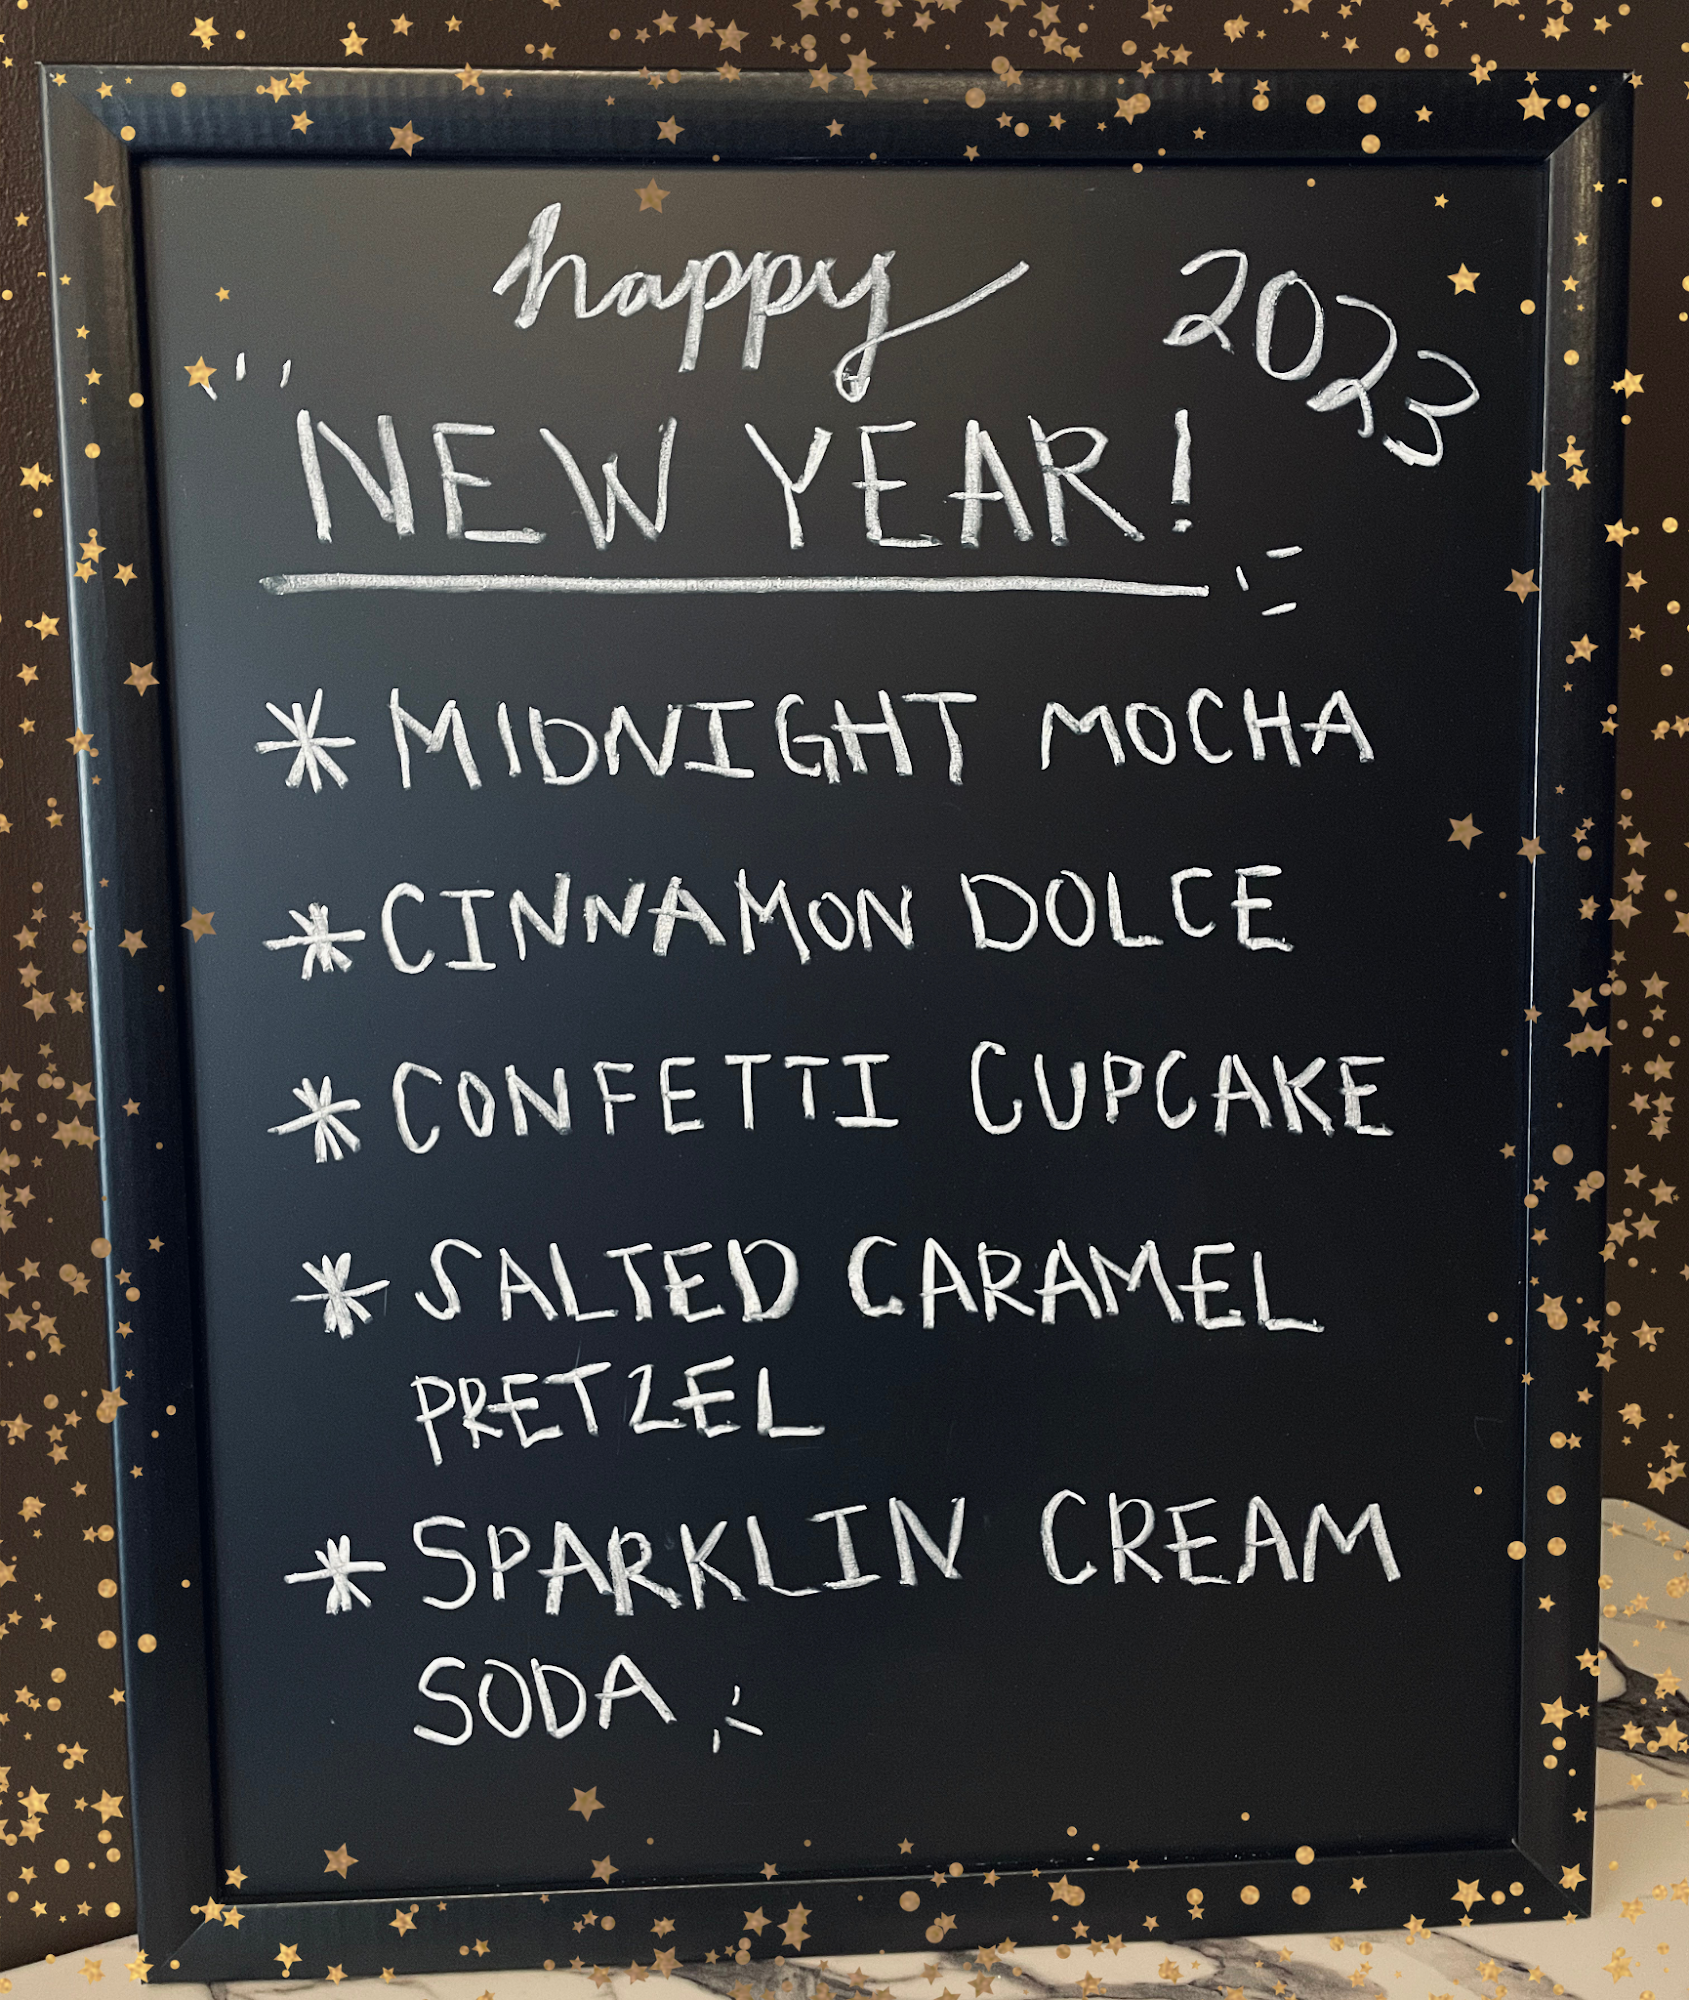 happy 2023
NEW YEAR!
* MIDNIGHT MOCHA
* CINNAMON DOLCE
* CONFETTI CUPCAKE
* SALTED CARAMEL
PRETZEL
* SPARKLIN CREAM
SODA